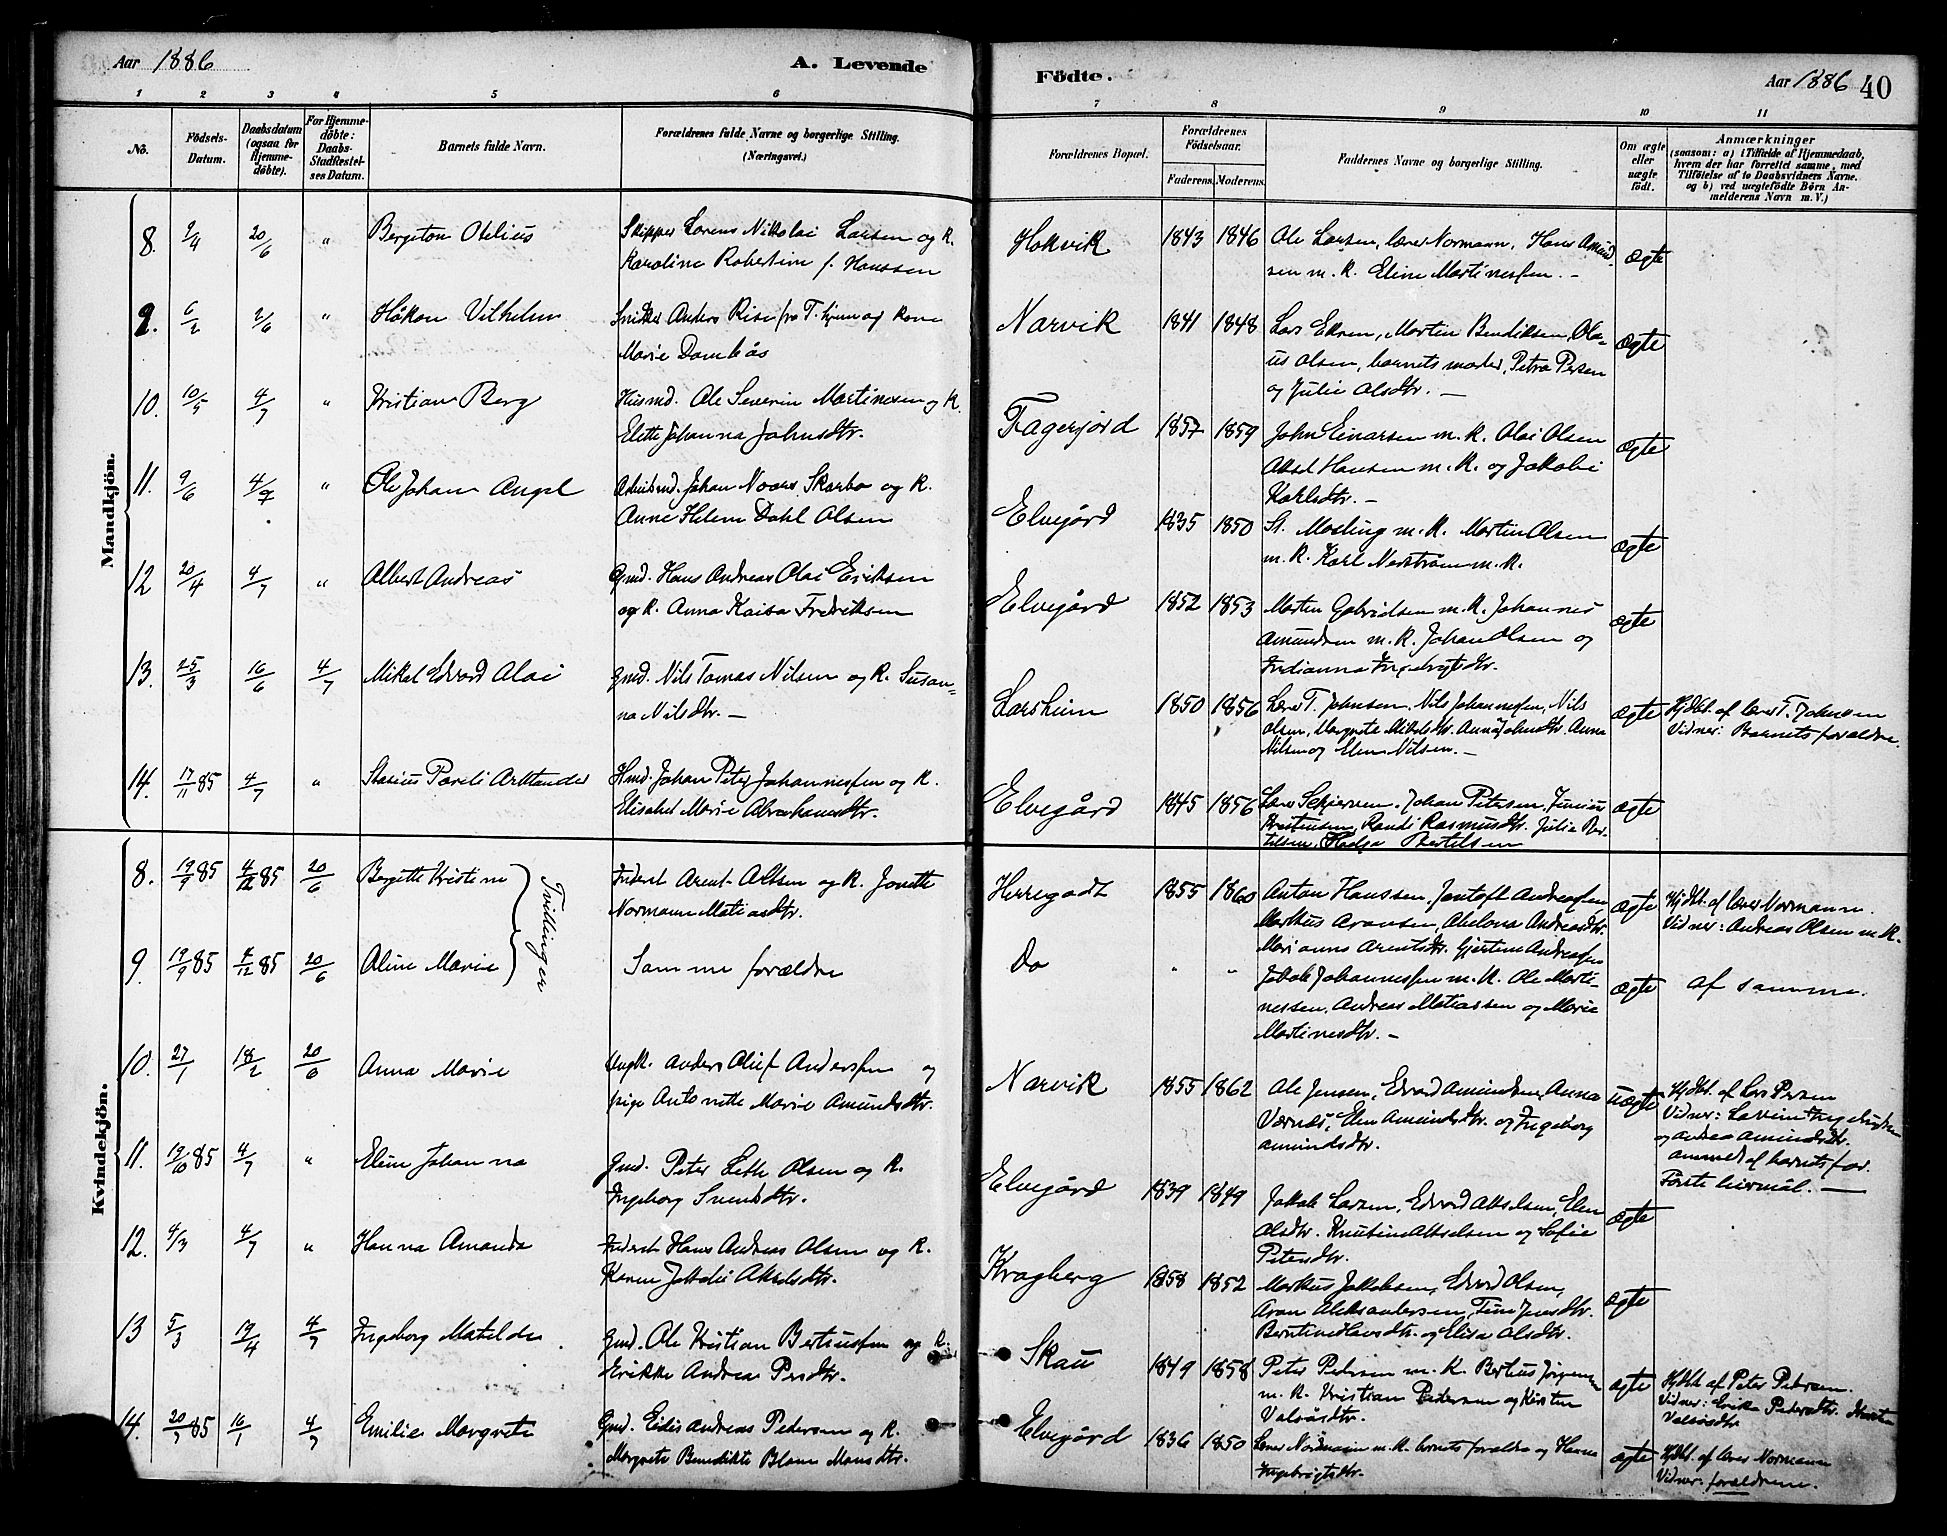 Aar 1886
A. Levende
Födte.
Aar 1886
40
1 2 3 4 5 6 7 8 9 10 11
No.
Fødsels-Datum.
Daabsdatum (ogsaa for Hjemme-døbte).
For Hjemme-døbte: Daabs-Stadfæstel-ses Datum.
Barnets fulde Navn.
Forældrenes fulde Navne og borgerlige Stilling. (Næringsvei.)
Forældrenes Bopæl.
Forældrenes Fødselsaar.
Faderens. Moderens.
Faddernes Navne og borgerlige Stilling.
Om ægte eller uægte født.
Anmærkninger
(saasom: a) i Tilfælde af Hjemmedaab, hvem der har forrettet samme, med Tilføielse af to Daabsvidners Navne, og b) ved uægtefødte Börn An-melderens Navn m. V.)
Mandkjön.
8. 20/6 " Bergiton Otelius
Skipper Lorens Nikolai Larsen og K.
Karoline Robertine f. Hanssen
Hokvik 1843 1846
Ole Larsen, lærer Normann, Hans Amund-
sen m. K. Eline Martinessen. -
ægte
9. 6/2 2/6 " Håkon Vilhelm
Snikker Anders Risi fra T.hjem og Kone
Marie Dombås
Narvik 1841 1848
Lars Ekren, Martin Bendiksen, Ola-
us Olsen, barnets moder, Petra Persen
og Julie Olsdtr. -
ægte
10. 10/5 4/7 " Kristian Berg
Husmd. Ole Severin Martinesen og K.
Elette Johanna Johnsdtr.
Fagerjord 1857 1859
John Einarsen m. K. Olai Olsen
Aksel Hansen m. K. og Jakobi
Karlsdtr. -
ægte
11. 9/6 4/7 " Ole Johan Angel
Johan Noars Skarbo og K.
Anne Helene Dahl Olsen
Elvegård 1835 1850
St. Mosling m. K. Martin Olsen
m. K. Karl Nerstrøm m. K.
ægte
12 20/4 4/7 " Albert Andreas
Gmd. Hans Andreas Olai Eriksen
og K. Anna Kaisa Fredriksen
Elvegård 1852 1853
Morten Gabrielsen m. K. Johannes
Amundsen m. K. Johan Olsen og
Indianna Ingebrigtsdtr.
ægte
13. 25/3 16/6 4/7 Mikal Edvard Olai
Gmd. Nils Tomas Nilsen og K. Susan-
na Nilsdtr. -
Larsheim 1850 1856
Lærer T. Johnsen, Nils Johannessen, Nils
Olsen, Margrete Mikelsdtr. Anna Johnsdtr. Anna
Nilsen og Elen Nilsen. -
ægte
Hjdbt. af lærer T. Johnsen
Vidner: Barnets forældre.
14. 17/11 85 4/7 " Starius Pareli Arktander
Hmd. Johan Peter Johannessen og K.
Elisabet Marie Abrahamsdtr.
Elvegård 1845 1856
Lars Skjerven, Johan Petersen, Junius
Kristensen, Randi Rasmusdtr. Julie Ber-
telsen, Hadga Bertelsen
ægte
Kvindekjön.
8. 19/9 85 4/12 85 20/6 Bergitte Kristine
Inderst Arent Olsen og K. Jonette
Normann Matiasdtr.
Herregodt 1855 1860
Anton Hanssen, Jentoft Andreassen
Markus Aronsen, Abelona Andreasdtr.
Marianne Arentsdtr. Gjertine Andreassen
ægte
Hjdbt. af lærer Normann.
Vidner: Andreas Olsen m. K.
Tvillinger
9. 19/9 85 4/12 85 20/6 Aline Marie
Samme forældre
Do " "
Jakob Johannessen m. K. Ole Marti-
nessen, Andreas Matiassen og Marie
Martinesdtr. -
ægte
af samme.
10. 27/1 18/2 20/6 Anna Marie
Ungk. Anders Oluf Anderssen og
pige Antonette Marie Amundsdtr.
Narvik 1855 1862
Ole Jensen, Edvard Amundsen, Anna
Værnes, Elen Amundsdtr. og Ingeborg
Amundsdtr.
uægte
Hjdbt. af Lars Persen
Vidner: Lavine Ingebrigtsen
og Andrea Amundsdtr.
anmeldt af barnets far.
Förste leiermål. -
11. 19/10 85 4/7 " Eline Johanna
Gmd. Peter Leth Olsen og K.
Ingeborg Svensdtr.
Elvegård 1839 1849
Jakob Larsen, Edvard Akselsen, Elen
Olsdtr. Knutine Akselsen og Sofie
Petersdtr.
ægte
12. 4/3 4/7 " Hanna Amanda
Inderst Hans Andreas Olsen og K.
Karen Jakobe Akselsdtr.
Kragberg 1858 1852
Markus Jakobsen, Edvard Olsen,
Aron Aleksandersen, Tina Jensdtr.
Berntine Hansdtr. og Elisa Olsdtr.
ægte
13 5/3 4/7 Ingeborg Matilde
Gmd. Ole Kristian Bertiussen og K.
Erikke Andrea Persdtr.
Skau 1849 1858
Peter Pedersen m. K. Bertius Jörgensen
m. K. Kristian Pedersen og Kirsten
Valsösdtr.
ægte
Hjdbt. af Peter Pedersen.
Vidner: Erika Pedersdtr. Kirsten
Valsösdtr
14. 20/7 85 16/1 4/7 Emilie Margrete
Gmd. Edis Andreas Pedersen og K.
Margrete Benedikte Blanc Monsdtr.
Elvegård 1836 1850
Lærer Normann m. K. barnets forældre og Hanna
Ingebrigtsdtr.
ægte
Hjdbt. af lærer Normann
Vidner: forældrene.